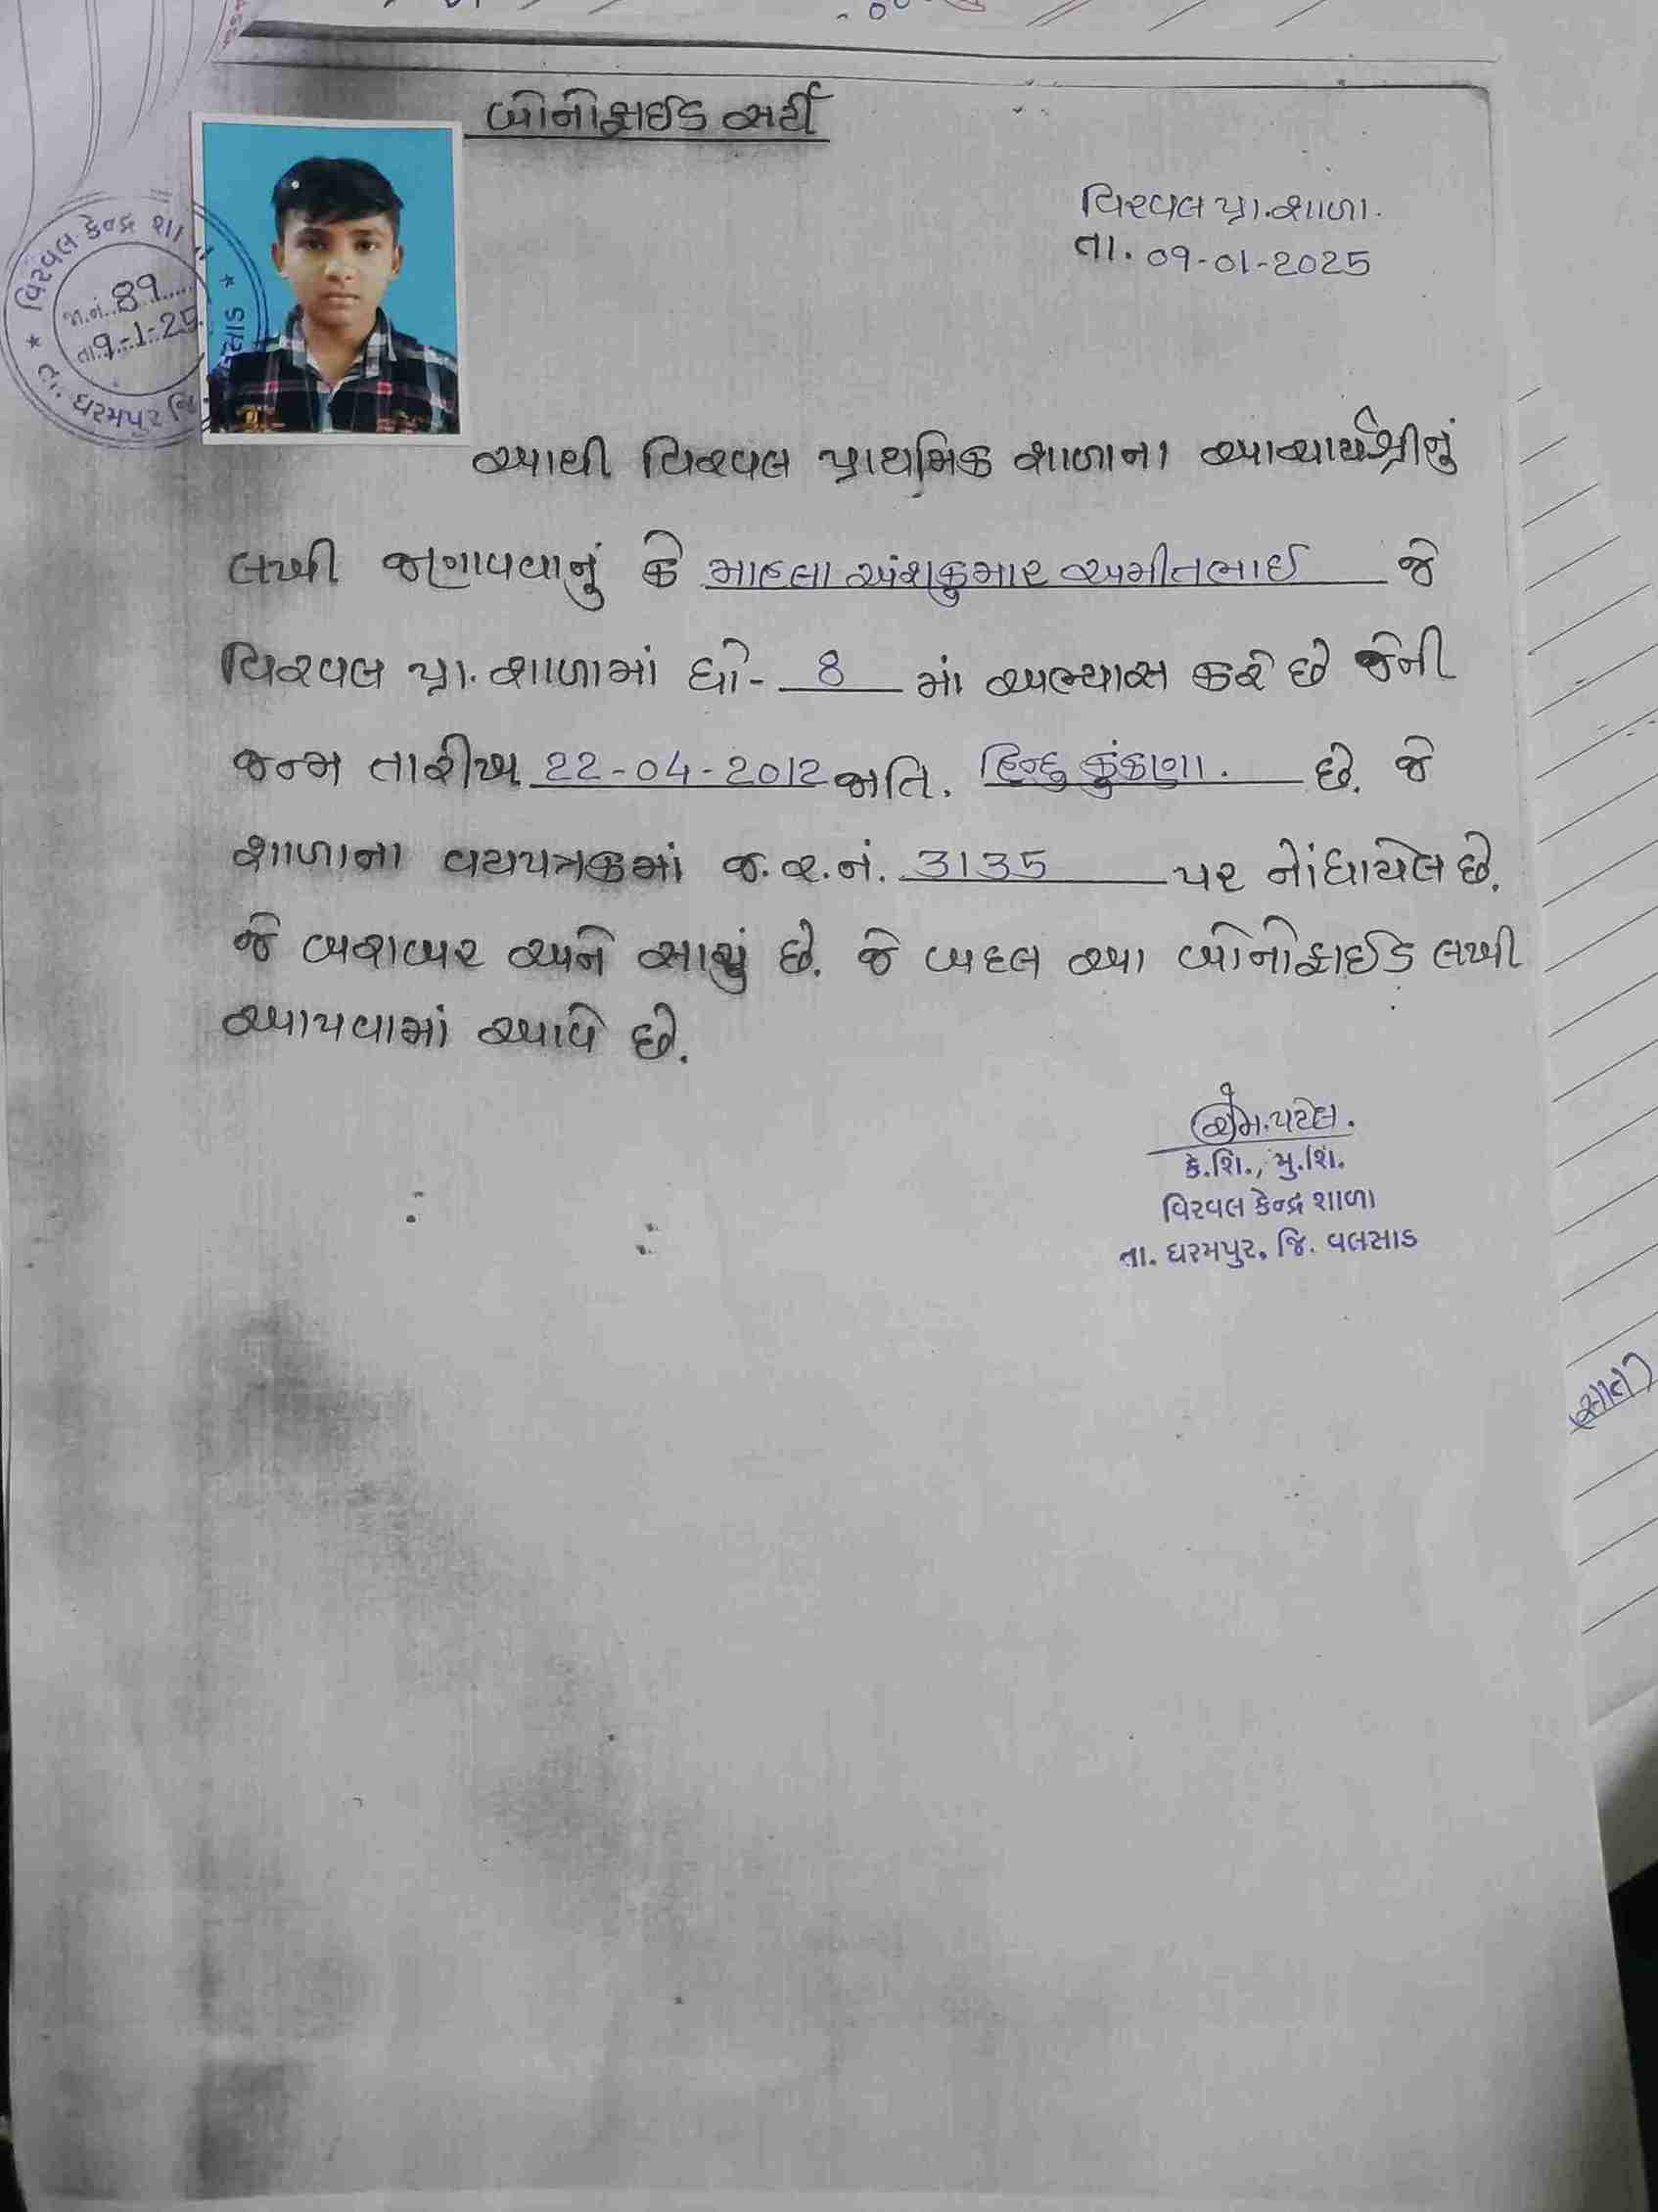 બોનોફાઈડ સર્ટી
વિરવલ પ્રા.શાળા.
તા. 09-01-2025
વિરવલ કેન્દ્ર શાળા
જા.નં. 89
તા. 9-1-25
તા. ધરમપુર જિ. વલસાડ
આથી વિરવલ પ્રાથમિક શાળાના આચાર્યશ્રીનું
લખી જણાવવાનું કે માહલા અંશકુમાર અમીતભાઈ જે
વિરવલ પ્રા. શાળામાં ધો- 8 માં અભ્યાસ કરે છે જેની
જન્મ તારીખ 22-04-2012 જાતિ. હિન્દુ કુંકણા. છે. જે
શાળાના વયપત્રકમાં જ.ર.નં. 3135 પર નોંધાયેલ છે.
જે બરાબર અને સાચું છે. જે બદલ આ બોનોફાઈડ લખી
આપવામાં આવે છે.
એમ.પટેલ.
કે.શિ., મુ.શિ.
વિરવલ કેન્દ્ર શાળા
તા. ધરમપુર, જિ. વલસાડ